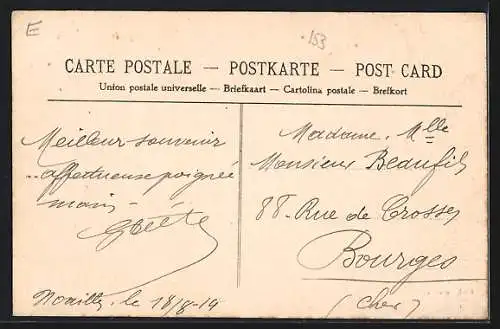 E
153
CARTE POSTALE — POSTKARTE — POST CARD
Union postale universelle — Briefkaart — Cartolina postale — Brefkort
Meilleur souvenir
affectueuse poignée
main
Madame, Mlle
Monsieur Beaufils
88 - Rue de Crosses
Bourges
(Cher)
le 18/8-14